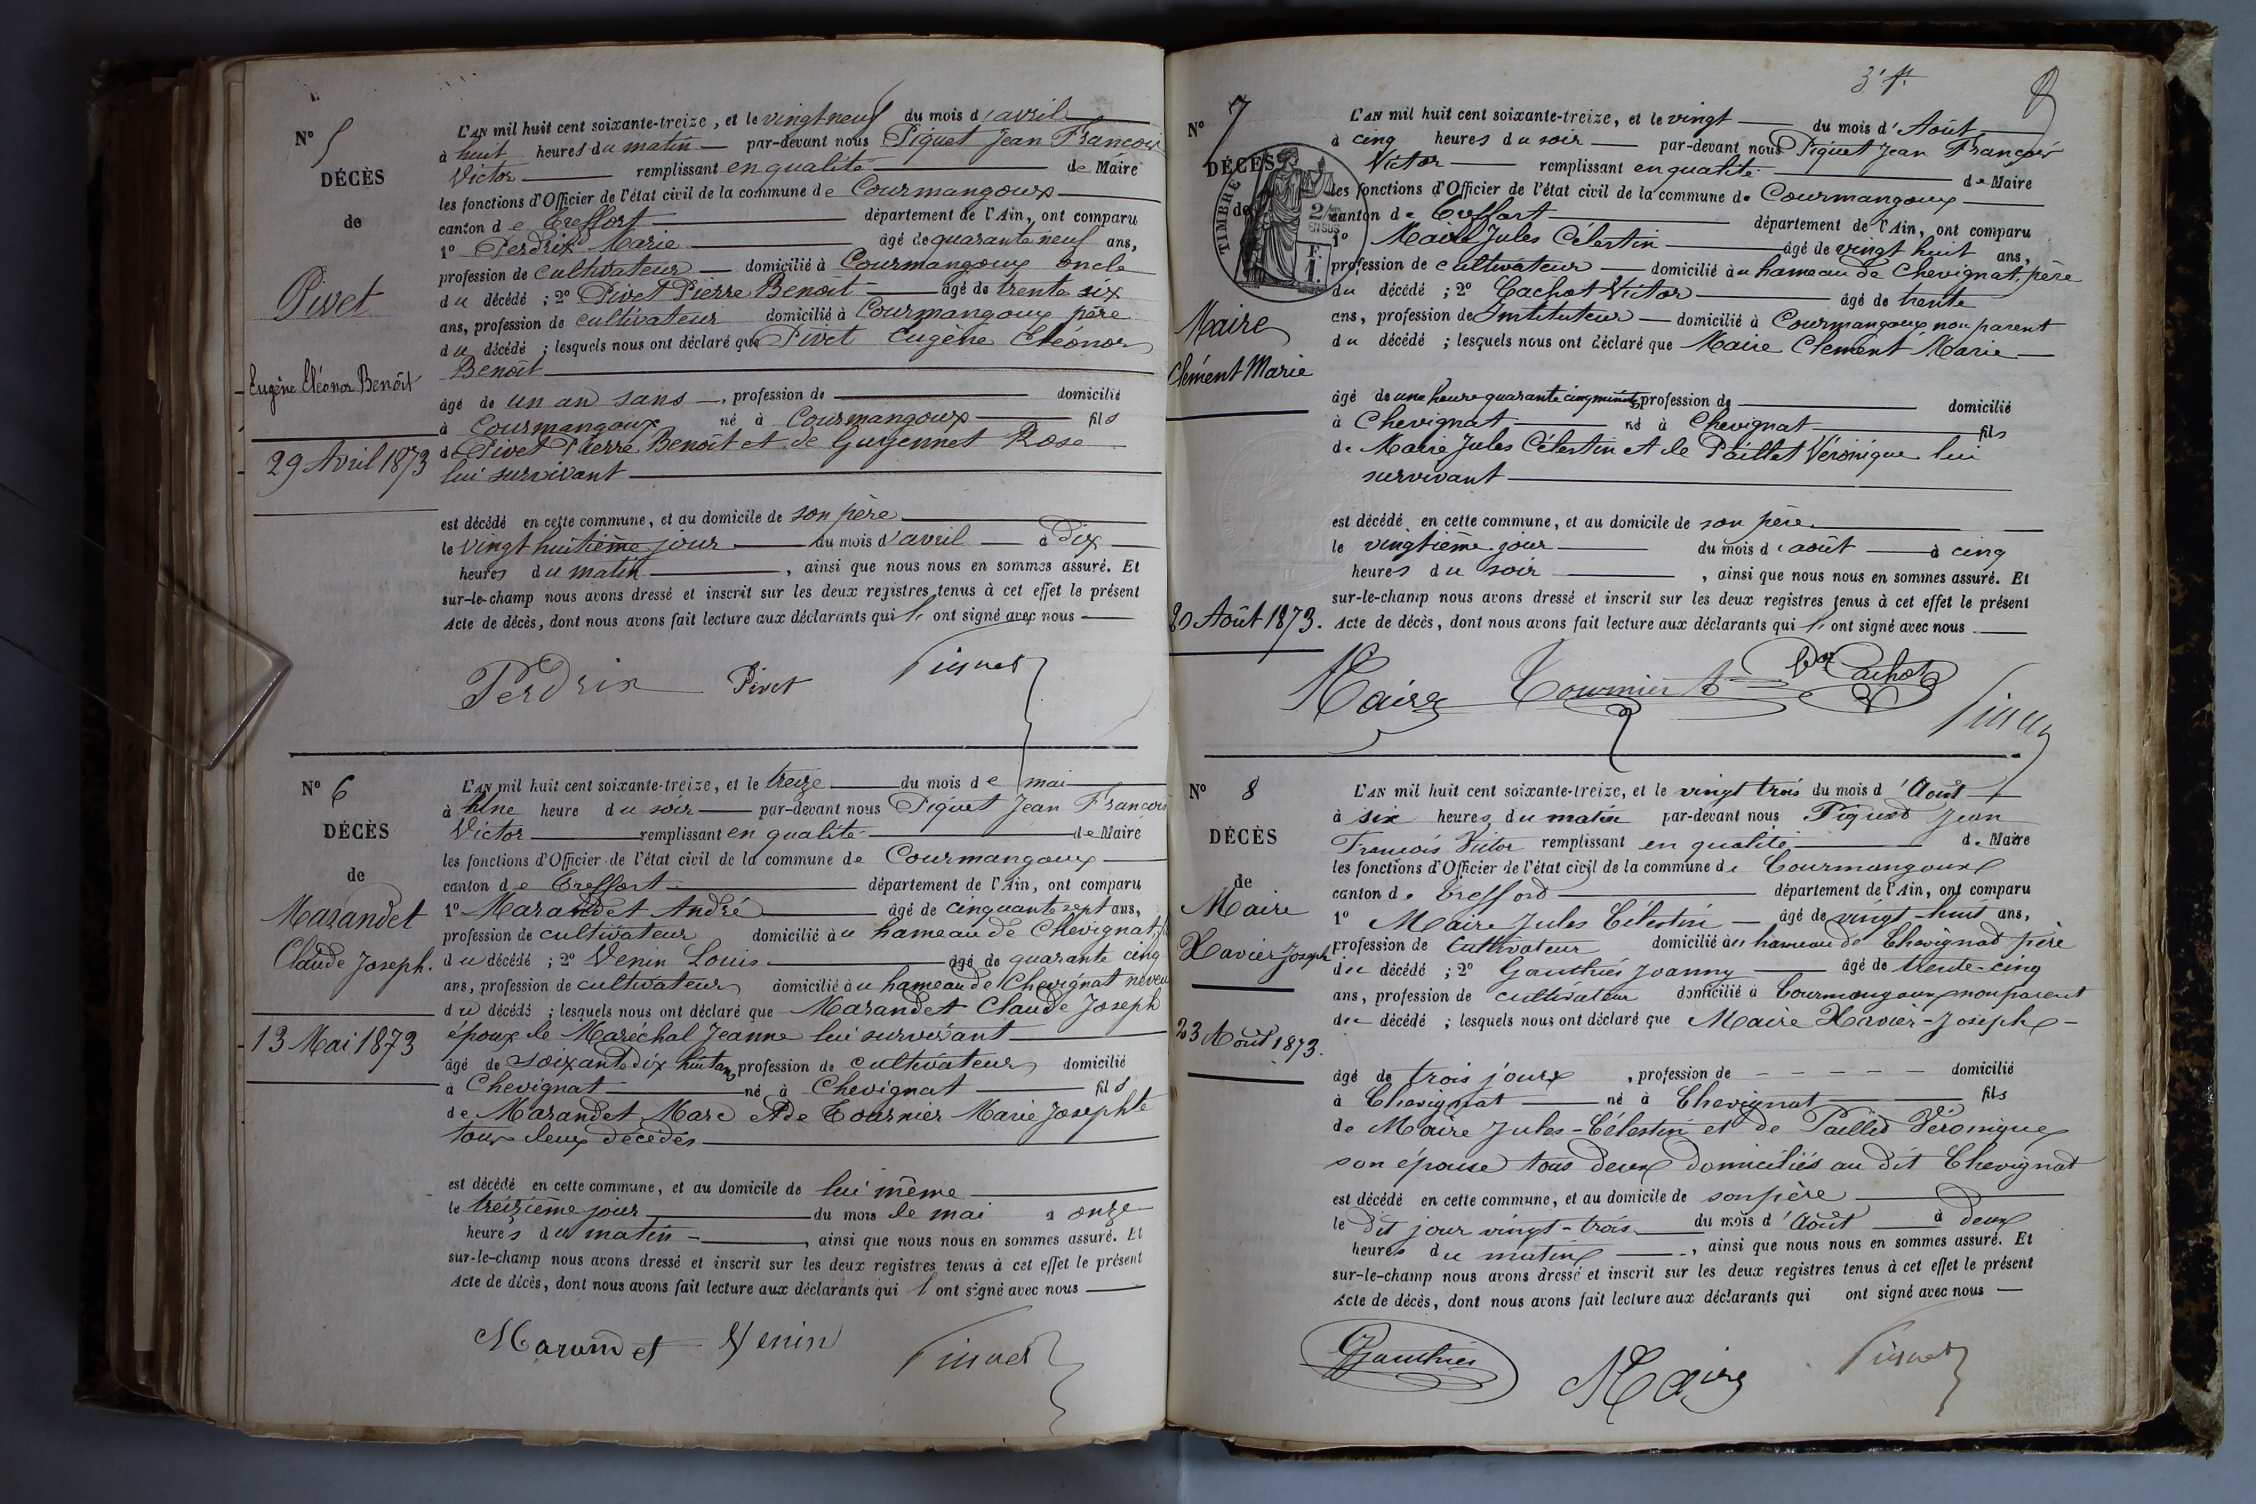 N° 5
DÉCÈS
de
Pivet
Eugène Eléonor Benoît
29 Avril 1873
L'AN mil huit cent soixante-treize, et le vingt neuf du mois d'avril
à huit heures du matin par-devant nous Piquet Jean François
Victor remplissant en qualité de Maire
les fonctions d'Officier de l'état civil de la commune de Courmangoux
canton de Treffort département de l'Ain, ont comparu
1° Perdrix Marie âgé de quarante neuf ans,
profession de cultivateur domicilié à Courmangoux oncle
du décédé ; 2° Pivet Pierre Benoit âgé de trente six
ans, profession de cultivateur domicilié à Courmangoux père
du décédé ; lesquels nous ont déclaré que Pivet Eugène Eléonor
Benoît
âgé de un an sans, profession de domicilié
à Courmangoux né à Courmangoux fils
de Pivet Pierre Benoît et de Guyennet Rose
lui survivant
est décédé en cette commune, et au domicile de son père
le vingt huitième jour du mois d'avril à Dix
heures du matin, ainsi que nous nous en sommes assuré. Et
sur-le-champ nous avons dressé et inscrit sur les deux registres tenus à cet effet le présent
Acte de décès, dont nous avons fait lecture aux déclarants qui l'ont signé avec nous
Perdrix Pivet Piquet
N° 6
DÉCÈS
de
Marandet
Claude Joseph.
13 Mai 1873
L'AN mil huit cent soixante-treize, et le treize du mois de mai
à Une heure du soir par-devant nous Piquet Jean François
Victor remplissant en qualité de Maire
les fonctions d'Officier de l'état civil de la commune de Courmangoux
canton de Treffort département de l'Ain, ont comparu
1° Marandet André âgé de cinquante sept ans,
profession de cultivateur domicilié au hameau de Chevignat
du décédé ; 2° Venin Louis âgé de quarante cinq
ans, profession de cultivateur domicilié au hameau de Chevignat neveu
du décédé ; lesquels nous ont déclaré que Marandet Claude Joseph
époux de Maréchal Jeanne lui survivant
âgé de soixante dix huit ans profession de cultivateur domicilié
à Chevignat né à Chevignat fils
de Marandet Marc et de Tournier Marie Josephte
tous deux décédés
est décédé en cette commune, et au domicile de lui même
le treizième jour du mois de mai à onze
heures du matin, ainsi que nous nous en sommes assuré. Et
sur-le-champ nous avons dressé et inscrit sur les deux registres tenus à cet effet le présent
Acte de décès, dont nous avons fait lecture aux déclarants qui l'ont signé avec nous
Marandet Venin Piquet
3e f.
8
N° 7
DÉCÈS
de
TIMBRE
2/10 EN SUS
F. 1.
Maire
Clément Marie
20 Août 1873.
L'AN mil huit cent soixante-treize, et le vingt du mois d'Août
à cinq heures du soir par-devant nous Piquet Jean François
Victor remplissant en qualité de Maire
les fonctions d'Officier de l'état civil de la commune de Courmangoux
canton de Treffort département de l'Ain, ont comparu
1° Maire Jules Célestin âgé de vingt huit ans,
profession de cultivateur domicilié au hameau de Chevignat, père
du décédé ; 2° Cachot Victor âgé de trente
ans, profession de Instituteur domicilié à Courmangoux non parent
du décédé ; lesquels nous ont déclaré que Maire Clément Marie
âgé de une heure quarante cinq minutes, profession de domicilié
à Chevignat né à Chevignat fils
de Maire Jules Célestin et de Paillet Véronique lui
survivant
est décédé en cette commune, et au domicile de son père
le vingtième jour du mois d'août à cinq
heures du soir, ainsi que nous nous en sommes assuré. Et
sur-le-champ nous avons dressé et inscrit sur les deux registres tenus à cet effet le présent
Acte de décès, dont nous avons fait lecture aux déclarants qui l'ont signé avec nous
Maire Tournier Vor Cachot Piquet
N° 8
DÉCÈS
de
Maire
Xavier Joseph
23 Août 1873.
L'AN mil huit cent soixante-treize, et le vingt trois du mois d'Août
à six heures du matin par-devant nous Piquet Jean
François Victor remplissant en qualité de Maire
les fonctions d'Officier de l'état civil de la commune de Courmangoux
canton de Trefford département de l'Ain, ont comparu
1° Maire Jules Célestin âgé de vingt-huit ans,
profession de Cultivateur domicilié au hameau de Chevignat père
du décédé ; 2° Gauthier Joanny âgé de trente-cinq
ans, profession de cultivateur domicilié à Courmangoux non parent
du décédé ; lesquels nous ont déclaré que Maire Xavier-Joseph
âgé de trois jours, profession de domicilié
à Chevignat né à Chevignat fils
de Maire Jules-Célestin et de Paillet Véronique
son épouse tous deux domiciliés au dit Chevignat
est décédé en cette commune, et au domicile de son père
le dit jour vingt-trois du mois d'Août à deux
heures du matin, ainsi que nous nous en sommes assuré. Et
sur-le-champ nous avons dressé et inscrit sur les deux registres tenus à cet effet le présent
Acte de décès, dont nous avons fait lecture aux déclarants qui ont signé avec nous
Gauthier Maire Piquet